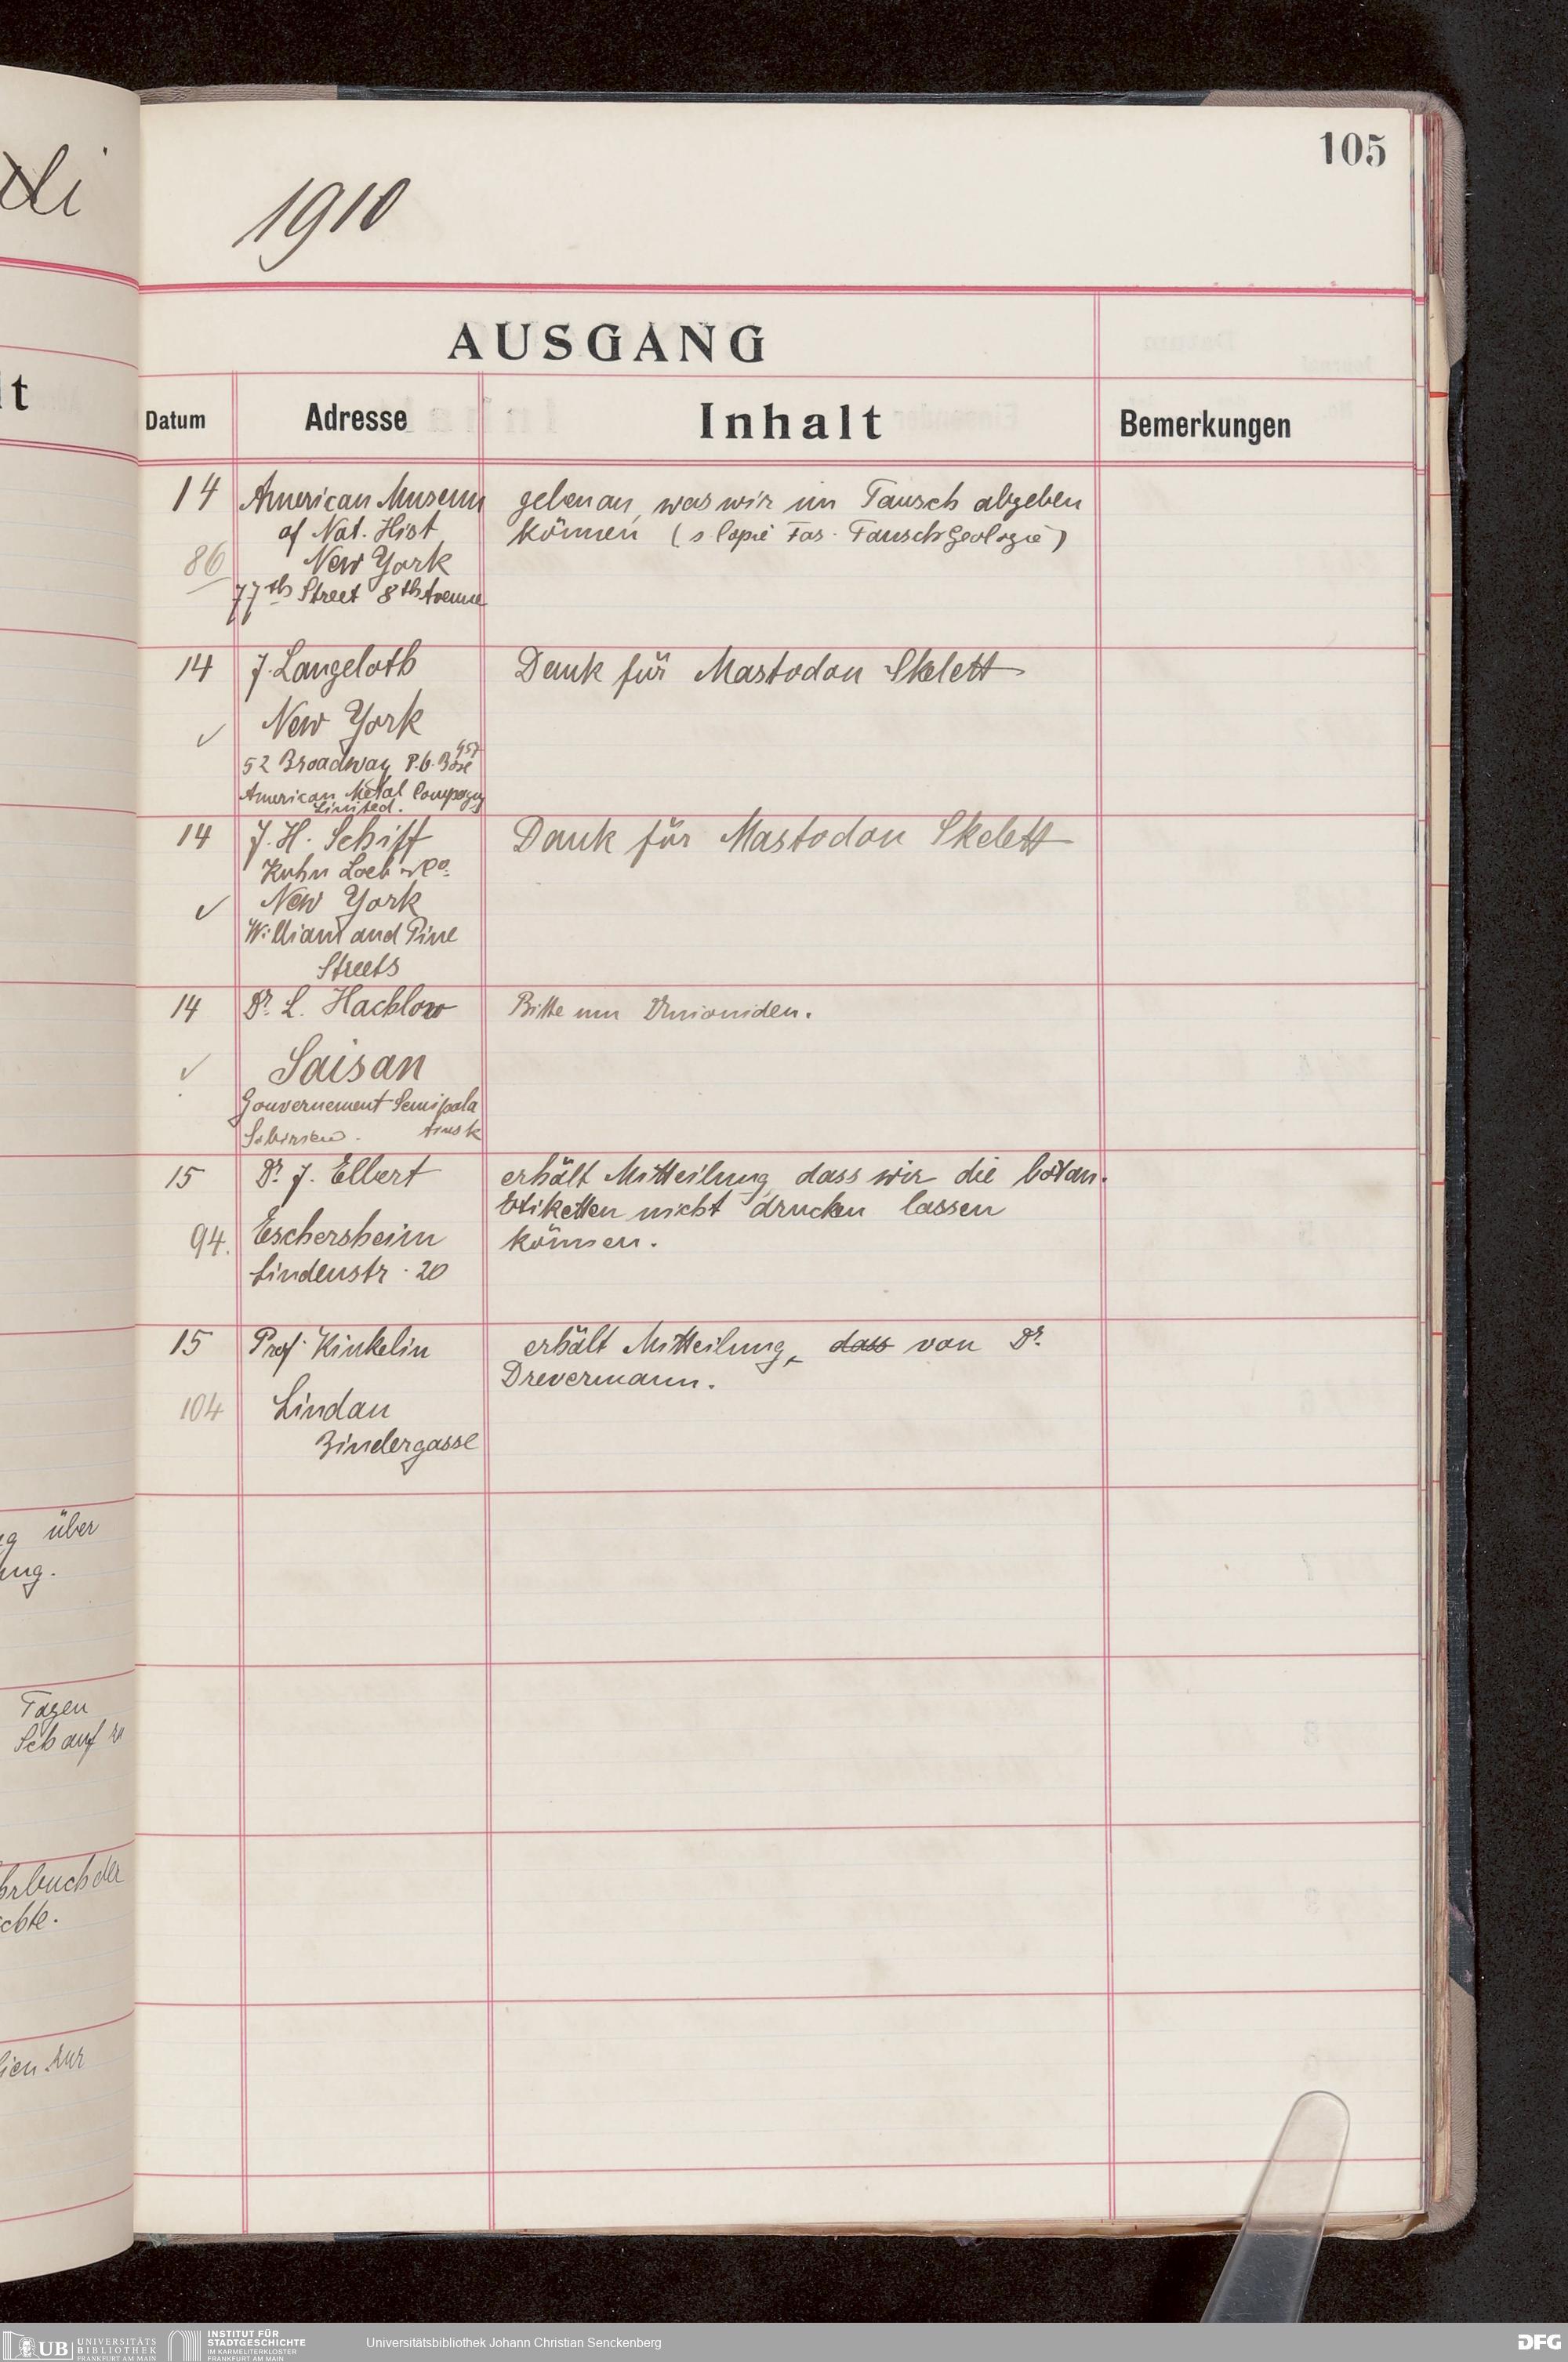 li
1910
105
AUSGANG
lt
Datum
Adresse
Inhalt
Bemerkungen
14
American Museum
of Nat. Hist
86
New York
77th Street 8th Avenue
geben an, was wir im Tausch abgeben
können (s. Copie Fas. Tausch Geologie)
14
J. Langeloth
New York
52 Broadway P.O. Box 957
American Metal Company
Limited.
Dank für Mastodon Skelett
14
J. H. Schiff
Kuhn Loeb & Co.
New York
William and Pine
Streets
Dank für Mastodon Skelett
14
Dr. L. Hachlow
Saisan
Gouvernement Semipala
tinsk
Sibirien.
Bitte um Unioniden.
15
Dr. J. Elbert
94.
Eschersheim
Lindenstr. 20
erhält Mitteilung, dass wir die botan.
Etiketten nicht drucken lassen
können.
15
Prof. Kinkelin
104
Lindau
Bindergasse
erhält Mitteilung, dass von Dr.
Drevermann.
über
ung.
Tagen
auf
hrbuch der
chte.
zur
UB UNIVERSITÄTS
BIBLIOTHEK
FRANKFURT AM MAIN
INSTITUT FÜR
STADTGESCHICHTE
IM KARMELITERKLOSTER
FRANKFURT AM MAIN
Universitätsbibliothek Johann Christian Senckenberg
DFG